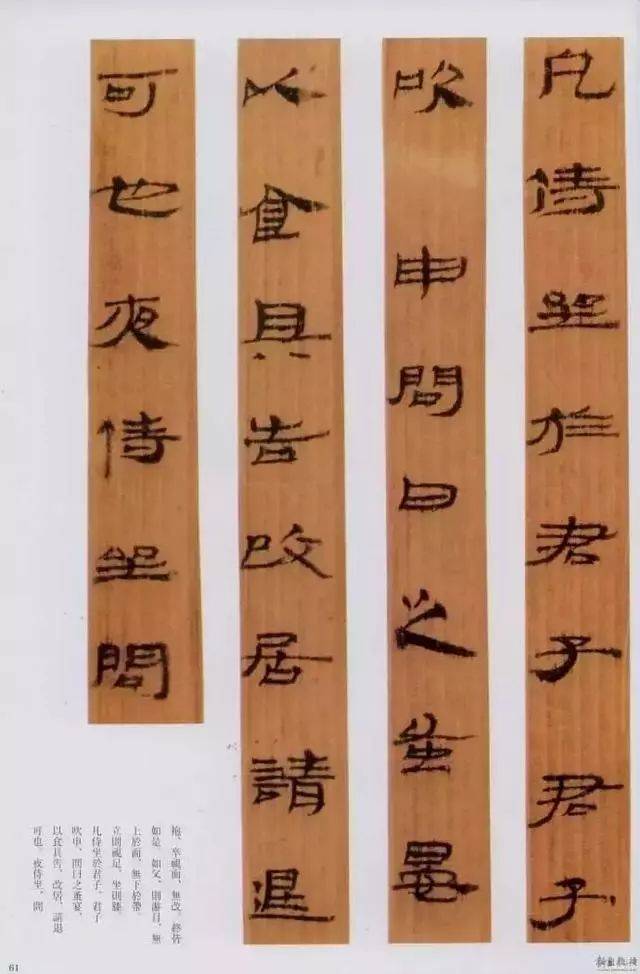 凡侍坐於君子君子
吹申問日之蚤晏
以食具告改居請退
可也夜侍坐問
袍、卒視面、無改、終皆
如是、如父、則游目、無
上於面、無下於帶
立則視足、坐則膝
凡侍坐於君子、君子
吹申、問日之蚤宴、
以食具告、改居、請退
可也、夜侍坐、問
61